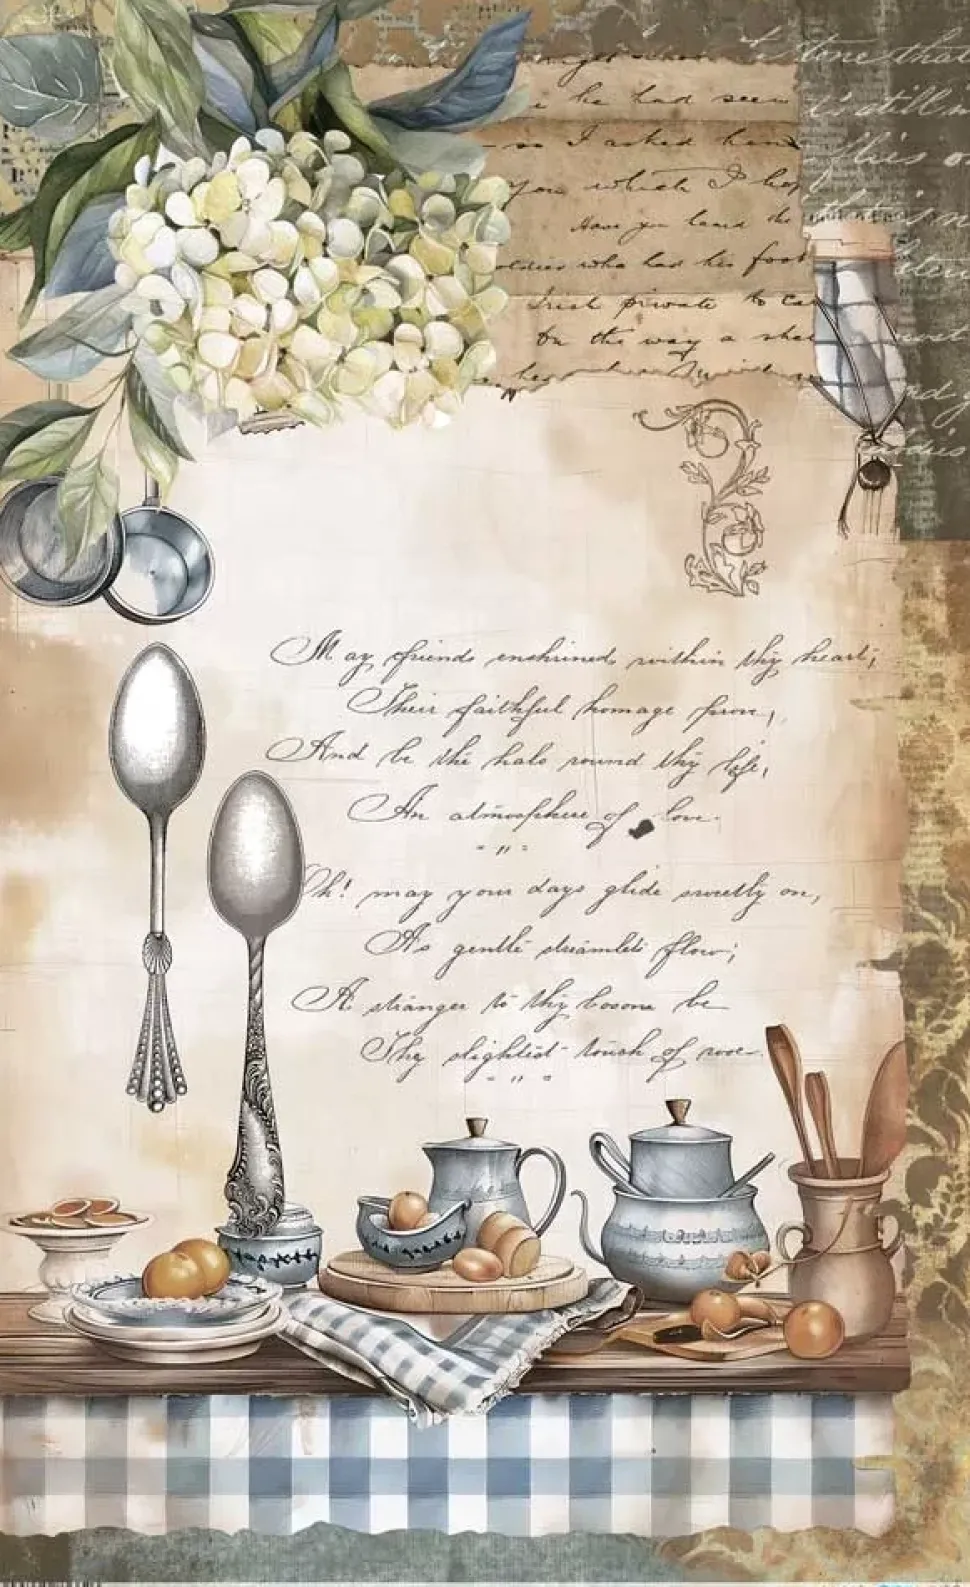 tone that
he had seen
is still n
so I asked
flies o
you which I hop
Have you heard the
soldier who had his foot
Irish private to car
On the way a
May friends enshrined within thy heart;
Their faithful homage prove,
And be the halo round thy life,
An atmosphere of love.
- " -
Oh! may your days glide sweetly on,
As gentle streamlets flow;
A stranger to thy bosom be
The slightest touch of woe.
- " -